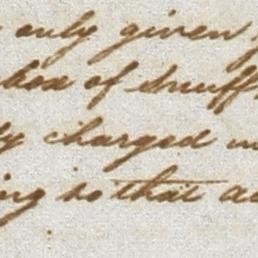 only given
box of Snuff
charged
so that